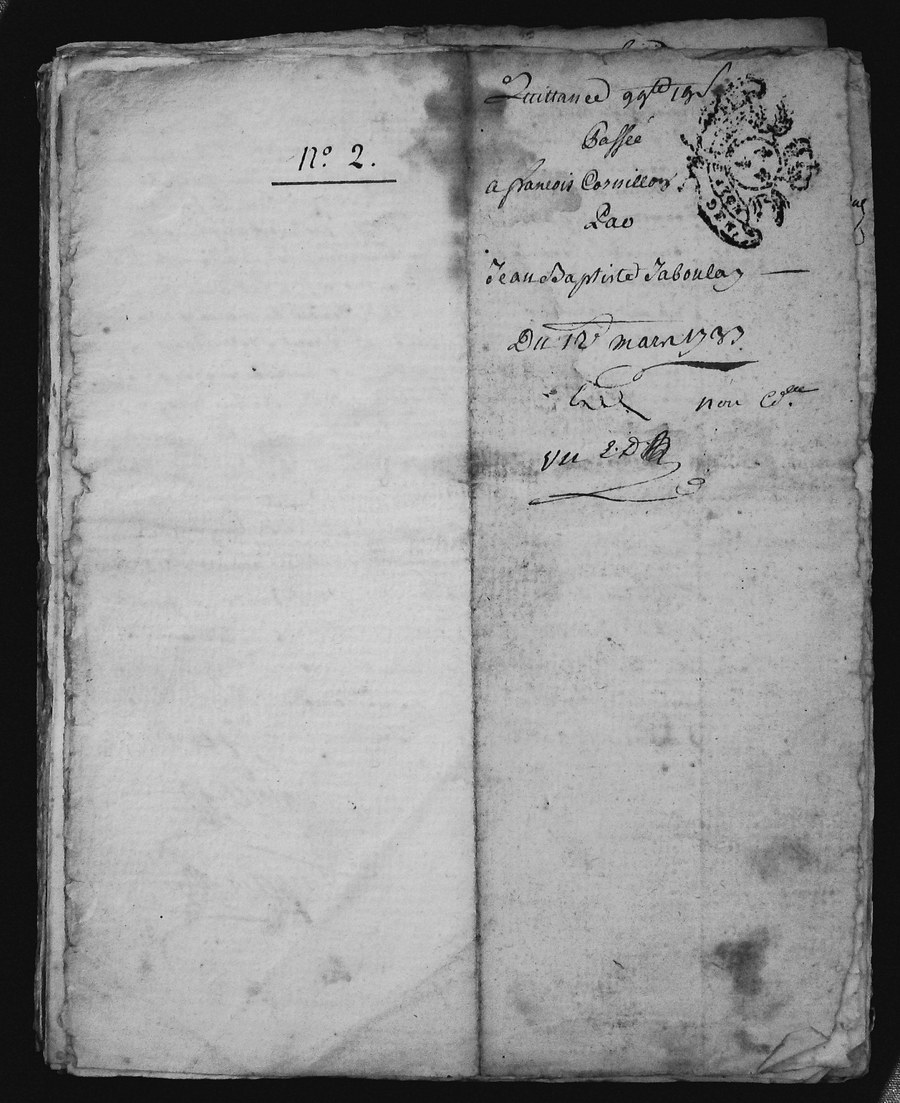 N.o 2.
Quittance 99lt 19s
Passée
a francois Cornillon
Par
Jean Baptiste Jaboulay
Du 12e mars 1783
vu